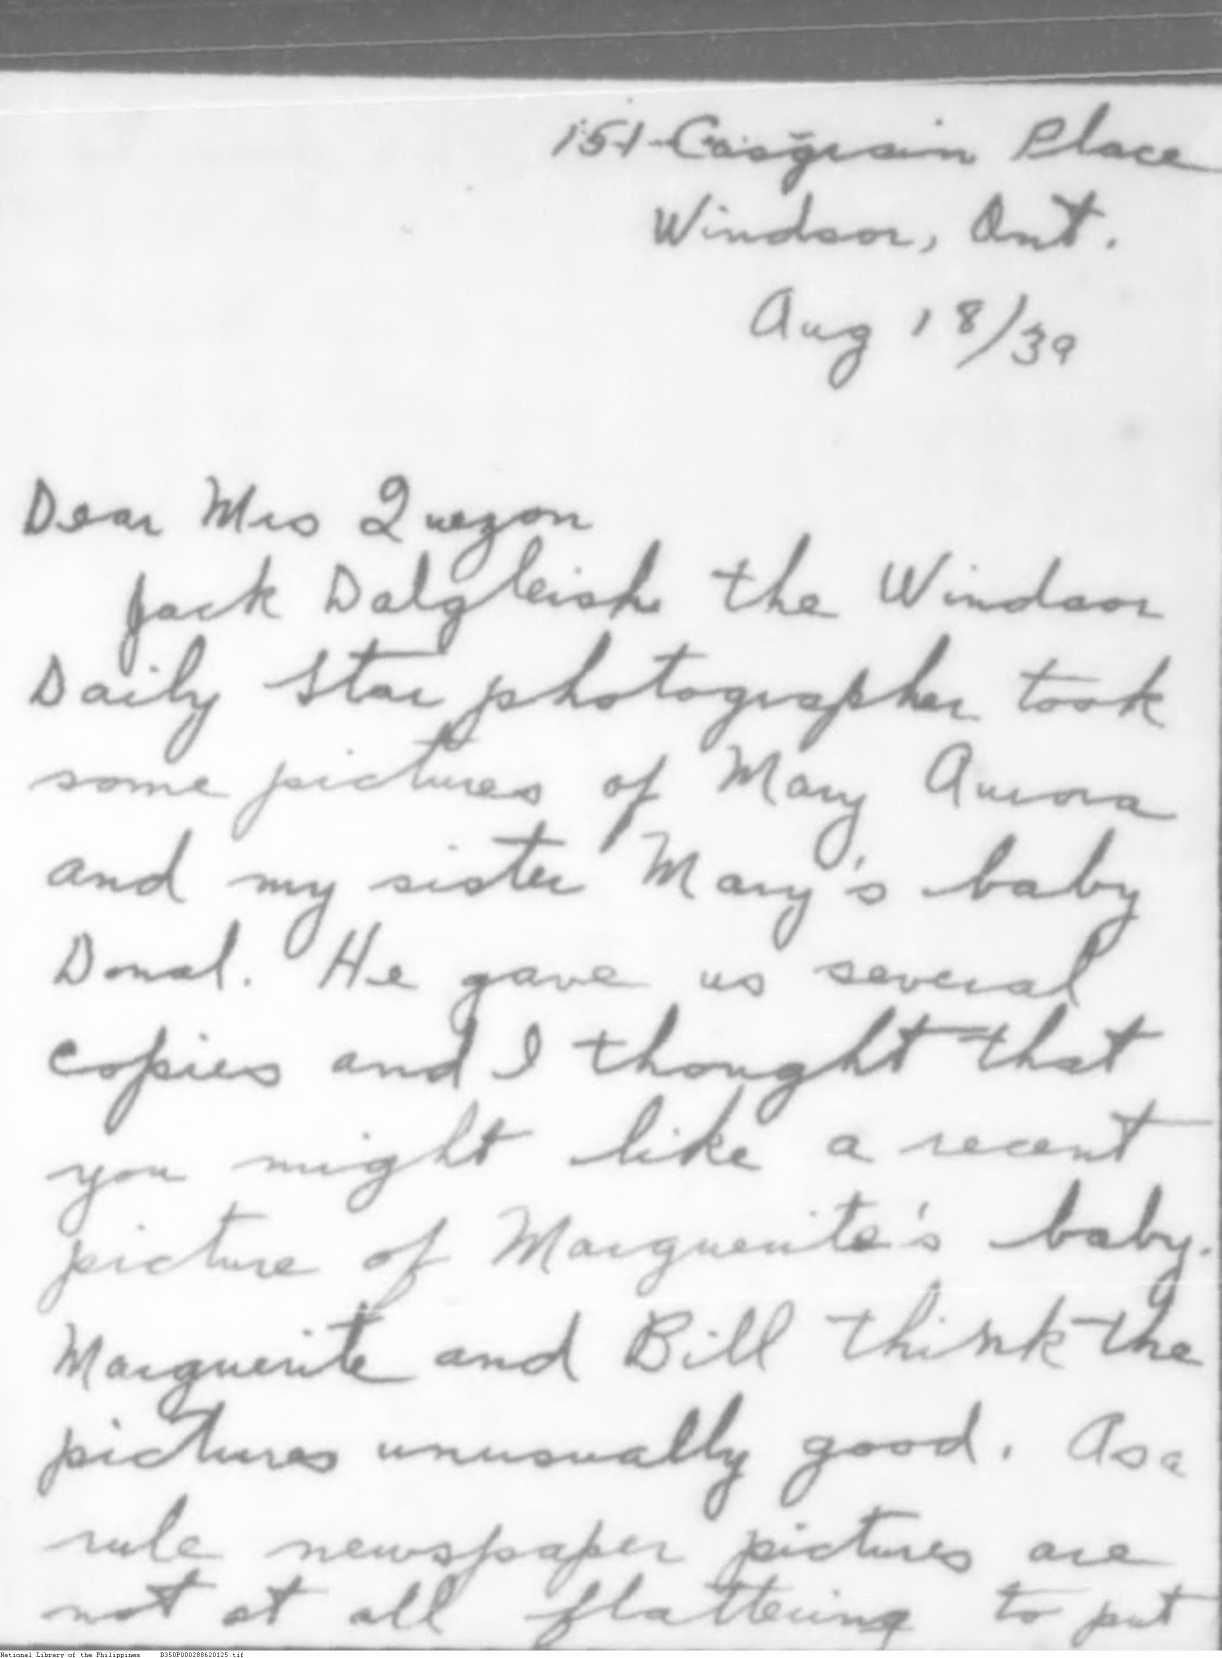 151 Casgrain Place
Windsor, Ont.
Aug 18/39
Dear Mrs Quezon
Jack Dalgleish the Windsor
Daily Star photographer took
some pictures of Mary Aurora
and my sister Mary's baby
Donal. He gave us several
copies and I thought that
you might like a recent
picture of Marguerite's baby.
Marguerite and Bill think the
pictures unusually good. As a
rule newspaper pictures are
not at all flattering to put
National Library of the Philippines D350P000288620125.tif